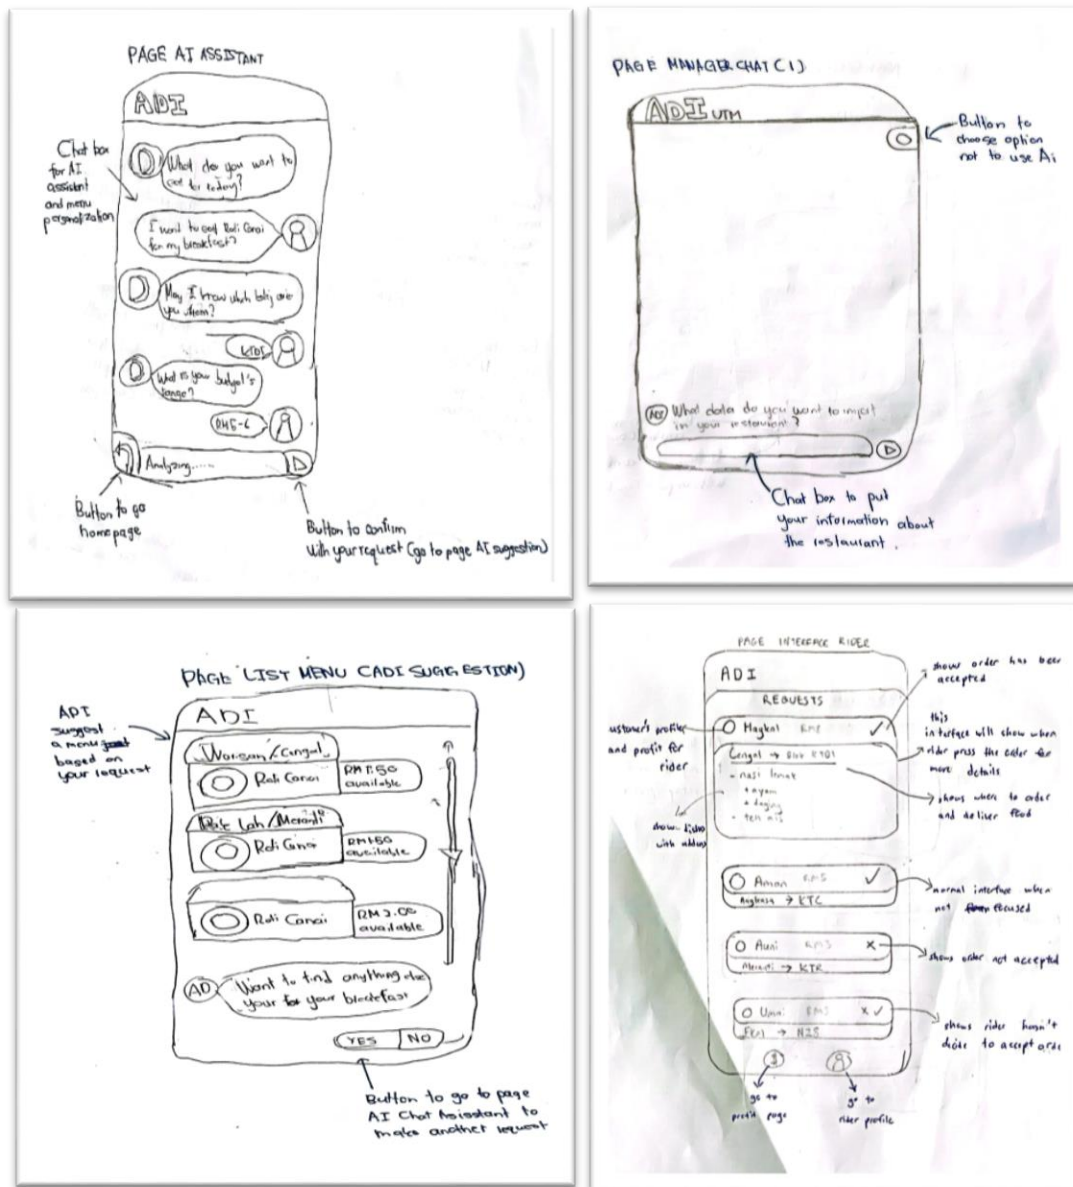 PAGE AI ASSISTANT
ADI
Chat box
for AI
assistent
and menu
personalization
What do you want to
eat for today?
I want to eat Roti Canai
for my breakfast?
May I know which kolej are
you from?
KTDI
What is your budget's
range?
RM5-6
Analyzing......
Button to go
homepage
Button to confirm
with your request (go to page AI suggestion)
PAGE MANAGER CHAT (1)
ADI UTM
Button to
choose option
not to use Ai
What data do you want to inject
in your restaurant?
Chat box to put
your information about
the restaurant.
PAGE LIST MENU (ADI SUGGESTION)
ADI
suggest
a menu
based on
your request
ADI
Warisan/Cengal
Roti Canai
RM1.50
available
Pak Lah/Meranti
Roti Canai
RM1.50
available
Roti Canai
RM2.00
available
AD
Want to find anything else
your for your
YES NO
Button to go to page
AI Chat Assistant to
make another request
PAGE INTERFACE RIDER
ADI
REQUESTS
shows order has been
accepted
customer's profiler
and profit for
rider
Haykal
this
interface will show when
rider press the order for
more details
Cengal →
- nasi lemak
+ ayam
+ daging
- teh ais
shows where to order
and deliver food
show dishes
with addons
Aman RM5
→ KTC
normal interface when
not focused
Auni RM5
Meranti → KTR
shows order not accepted
RM5
→ N28
shows rider hasn't
decide to accept order
go to
profit page
go to
rider profile